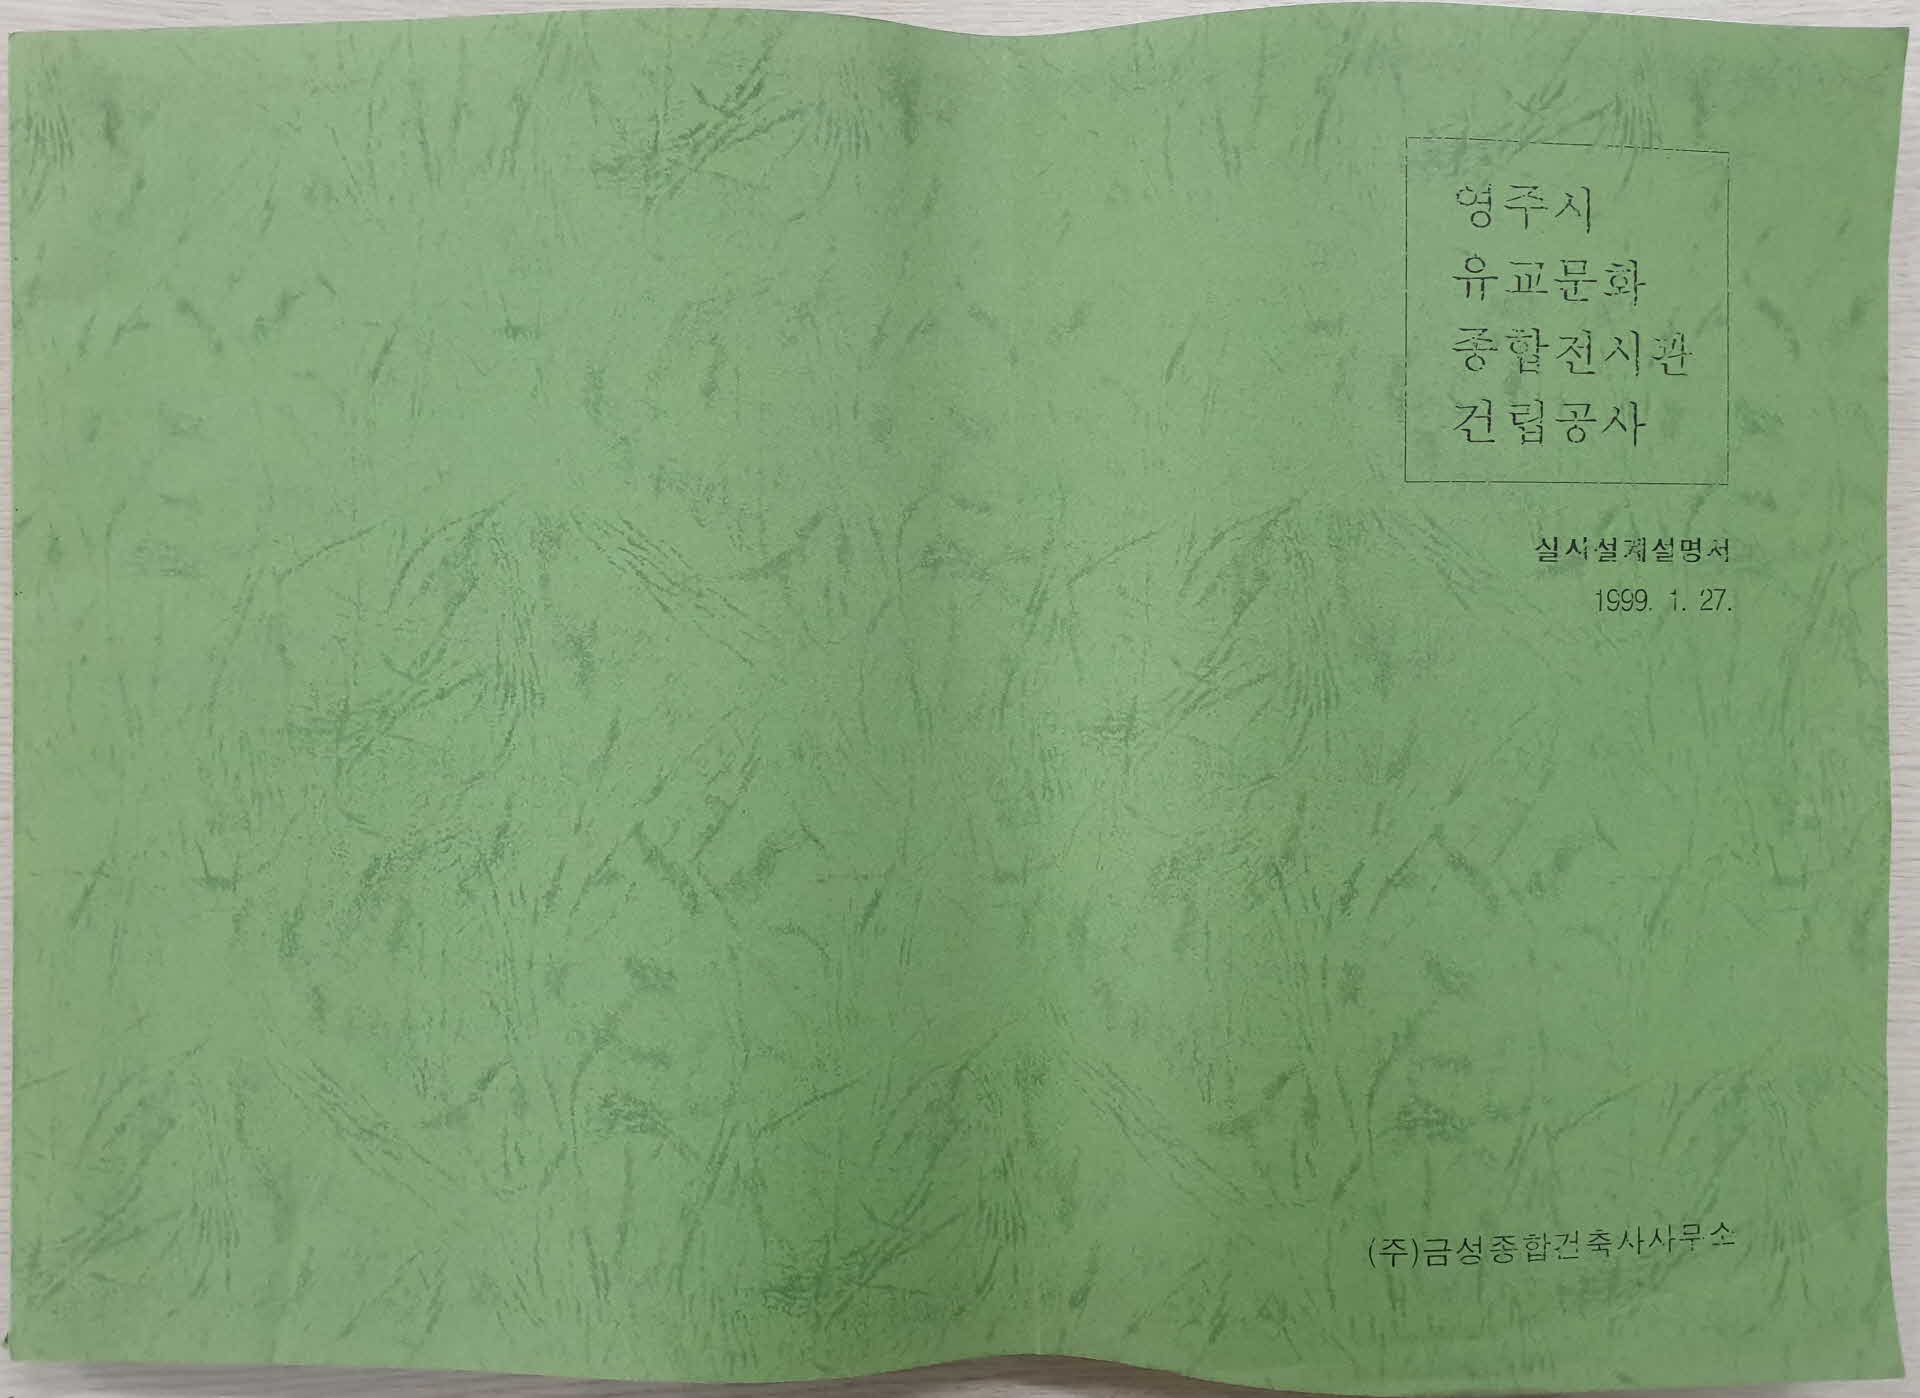 영주시
유교문화
종합전시관
건립공사
실시설계설명서
1999. 1. 27.
(주)금성종합건축사사무소